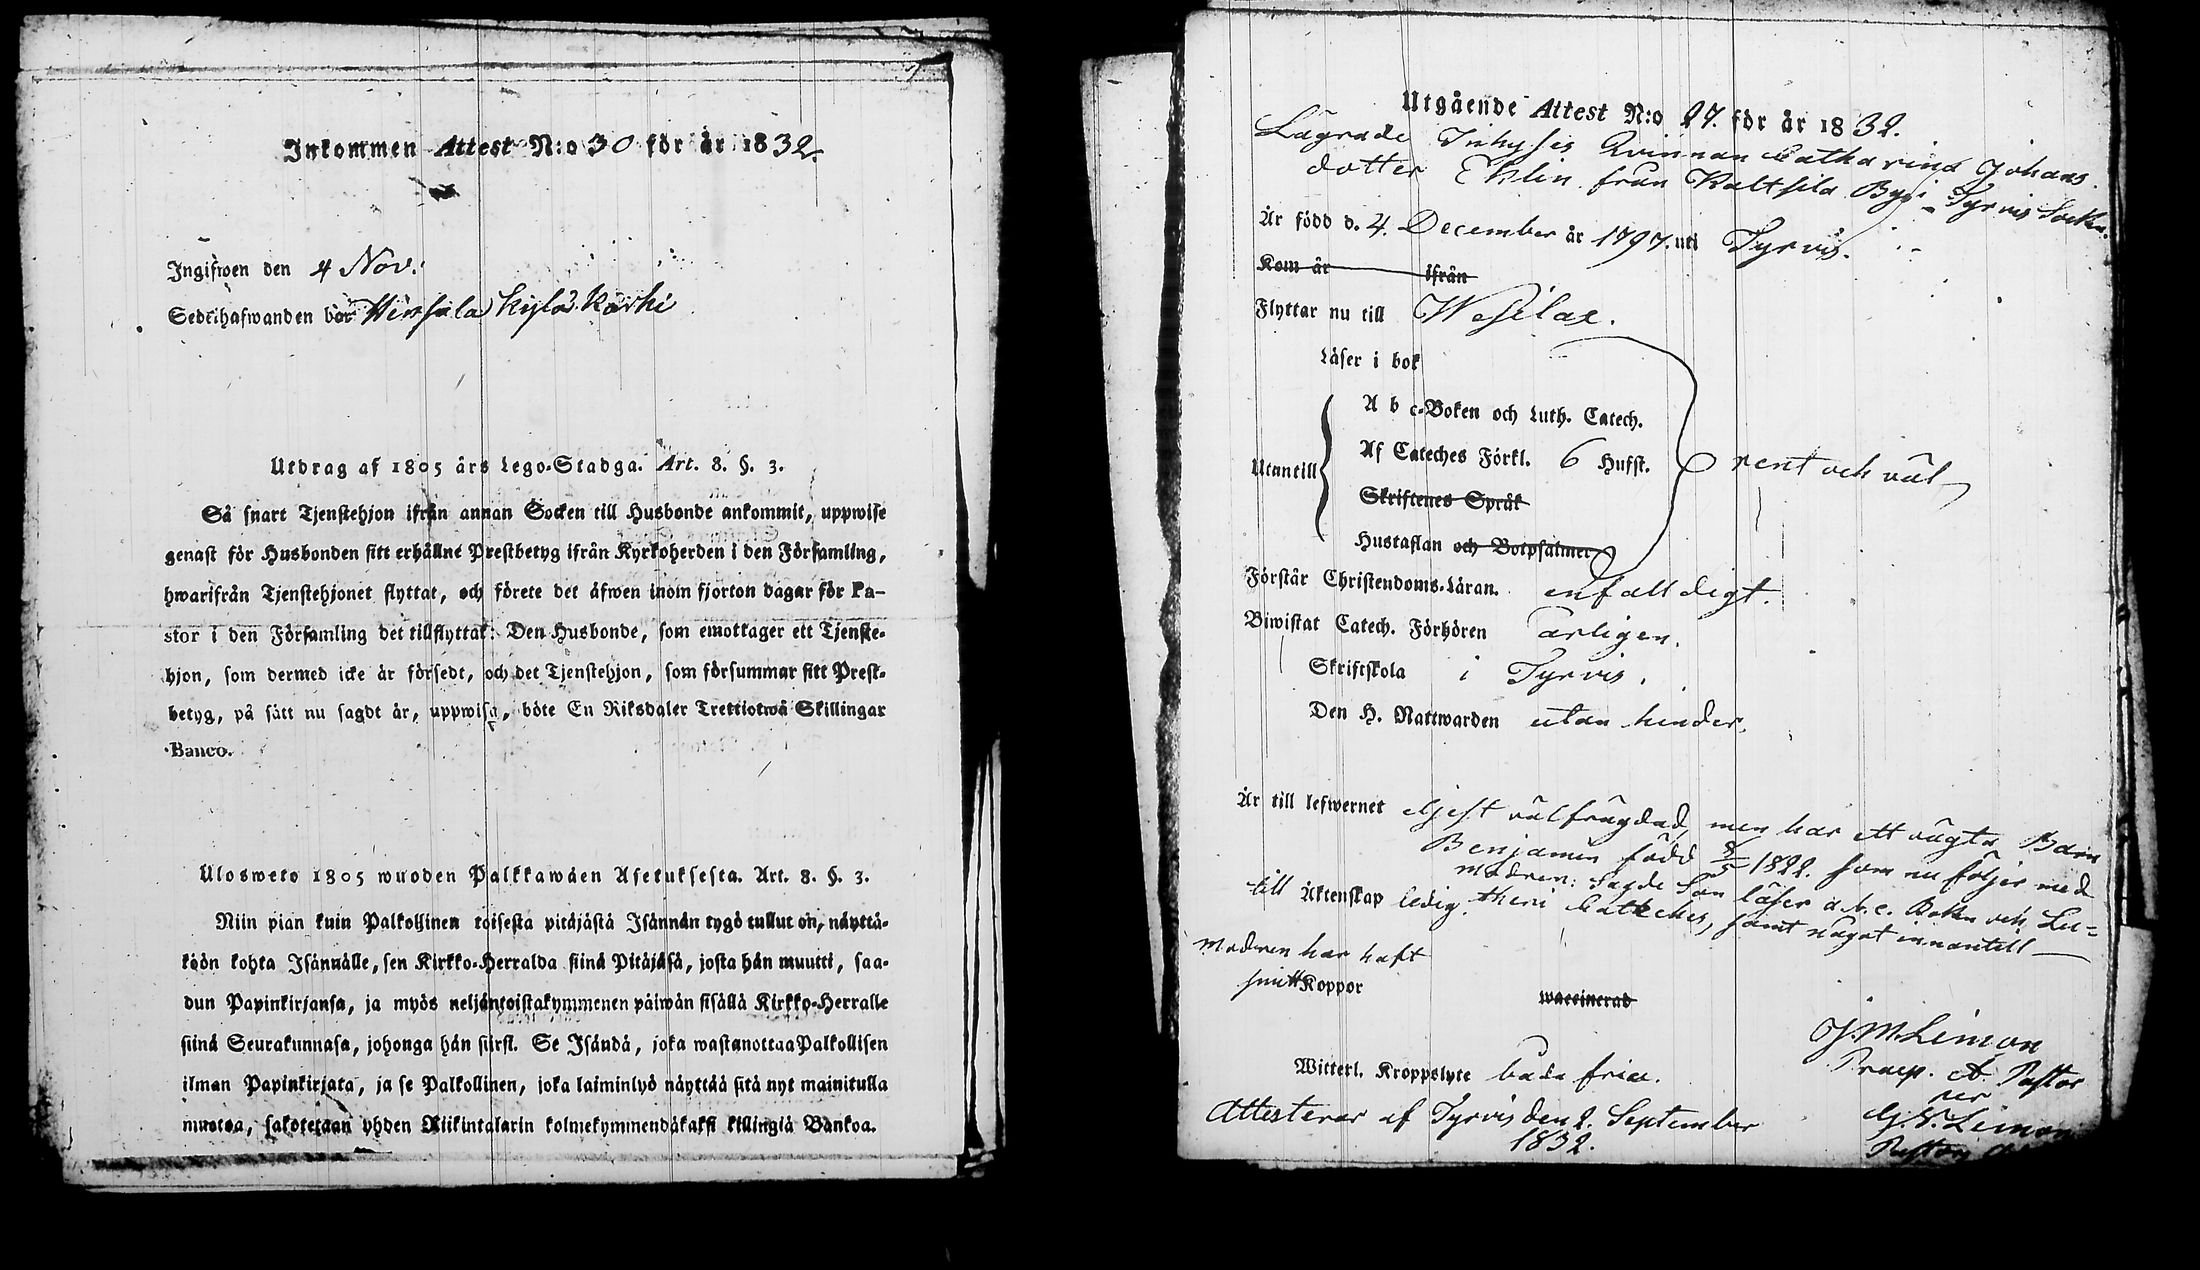 Inkommen Attest N:o 30 för år 1832.
Ingifwen den 4 Nov.
Sedelhafwanden bor Hinsala kylä Kärki
Utdrag af 1805 års Lego-Stadga. Art. 8. §. 3.
Så snart Tjenstehjon ifrån annan Socken till Husbonde ankommit, uppwise
genast för Husbonden sitt erhållne Prestbetyg ifrån Kyrkoherden i den Församling,
hwarifrån Tjenstehjonet flyttat, och förete det äfwen inom fjorton dagar för Pa-
stor i den Församling det tillflyttat: Den Husbonde, som emottager ett Tjenste-
hjon, som dermed icke är försedt, och det Tjenstehjon, som försummar sitt Prest-
betyg, på sätt nu sagdt är, uppwisa, böte En Riksdaler Trettiotwå Skillingar
Banco.
Ulosweto 1805 wuoden Palkkawäen Asetuksesta. Art. 8. §. 3.
Niin pian kuin Palkollinen toisesta pitäjästä Isännän tygö tullut on, näyttä-
köön kohta Isännälle, sen Kirkko-Herralda siinä Pitäjäsä, josta hän muutti, saa-
dun Papinkirjansa, ja myös neljäntoistakymmenen päiwän sisällä Kirkko-Herralle
siinä Seurakunnasa, johonga hän siirsi. Se Isändä, joka wastanottaa Palkollisen
ilman Papinkirjata, ja se Palkollinen, joka laiminlyö näyttää sitä nyt mainitulla
muotoa, sakotetaan yhden Riikintalarin kolmekymmendäkaksi killingiä Bankoa.
Utgående Attest N:o 27. för år 1832.
Lägrade Inhyses Qvinnan Catharina Johans
dotter Eklin från Kaltsila By i Tyrvis Sockn.
Är född d. 4. December år 1797. uti Tyrvis.
Kom år ifrån
Flyttar nu till Wesilax.
Läser i bok
A b c-Boken och Luth. Catech.
Utantill Af Cateches Förkl. 6 Hufst. rent och väl
Skriftenes Språk
Hustaflan och Botpsalmer
Förstår Christendoms-Läran. enfalldigt.
Biwistat Catech. Förhören årligen.
Skriftskola i Tyrvis.
Den H. Nattwarden utan hinder.
Är till lefwernet eljest välfrägdad, men har ett oägta Barn
Benjamin född 8/5 1822. som nu följer med
modren: Sagde Son läser a.b.c. Boken och Lu=
till Äktenskap ledig. theri Cateches, samt något innantill
modren har haft
smitt Koppor waccinerad
J. M. Limon
Praep. & Pastor
Witterl. Kroppslyte båda fria.
per
Attesterar af Tyrvis den 2. September
1832.
G. V. Limon